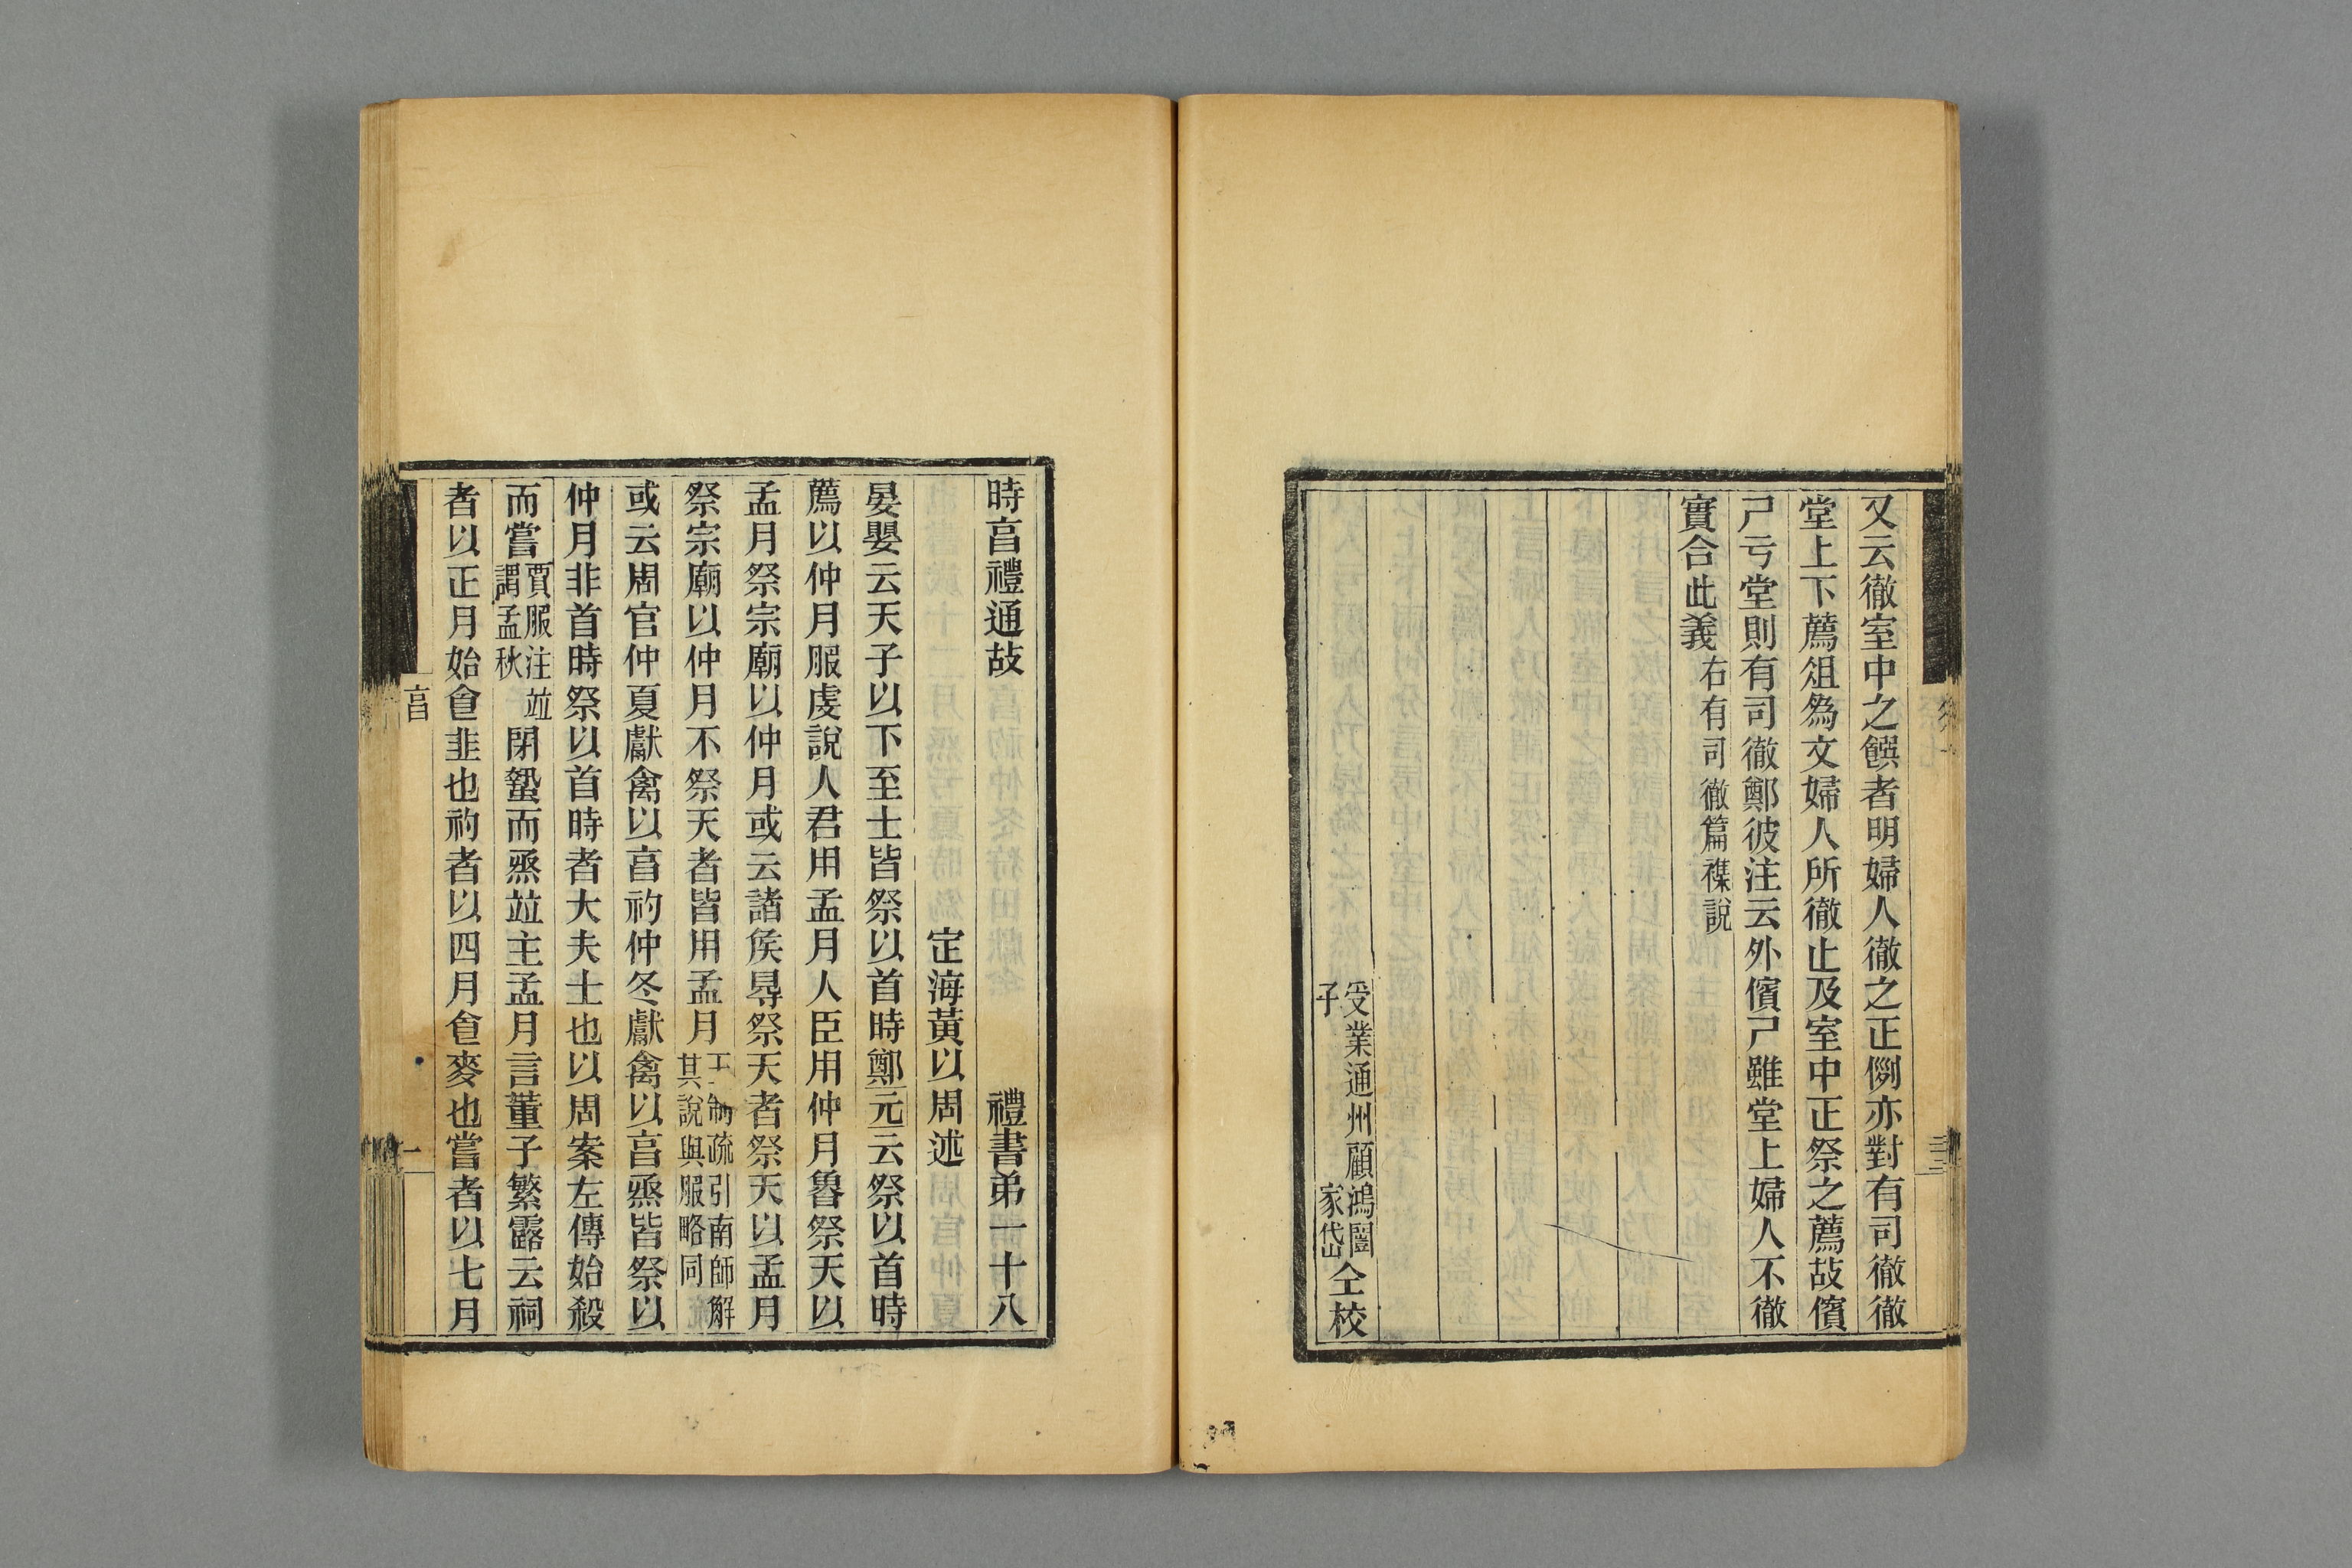 又云徹室中之饌者明婦人徹之正例亦對有司徹徹
堂上下薦俎爲文婦人所徹止及室中正祭之薦故儐
尸亏堂則有司徹鄭彼注云外儐尸雖堂上婦人不徹
實合此義右有司徹篇襍說
受業通州顧鴻闓
子家岱
仝校
時亯禮通故
禮書弟一十八
定海黃以周述
晏嬰云天子以下至士皆祭以首時鄭元云祭以首時
薦以仲月服虔說人君用孟月人臣用仲月魯祭天以
孟月祭宗廟以仲月或云諸矦㝵祭天者祭天以孟月
祭宗廟以仲月不祭天者皆用孟月王制疏引南師解其說與服略同
或云周官仲夏獻禽以亯礿仲冬獻禽以亯烝皆祭以
仲月非首時祭以首時者大夫士也以周案左傳始殺
而嘗賈服注竝謂孟秋閉蟄而烝竝主孟月言董子繁露云祠
者以正月始食韭也礿者以四月食麥也嘗者以七月
亯
一